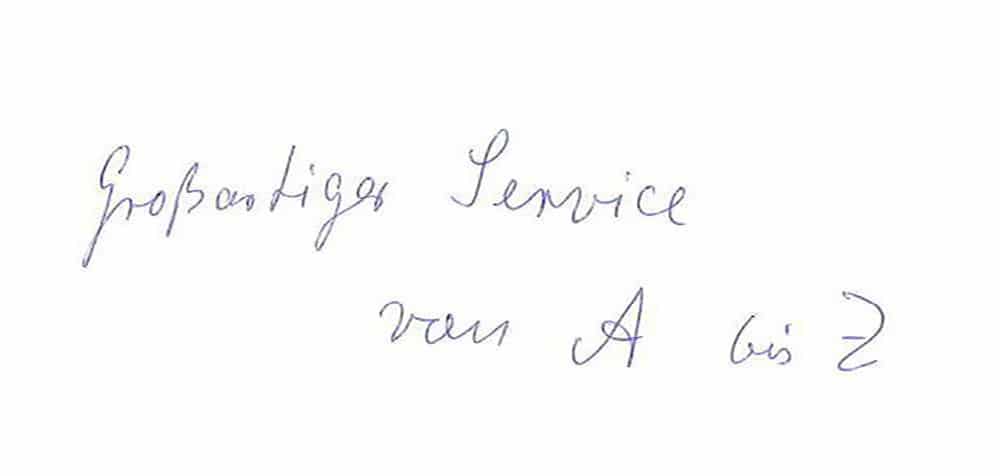 Großartiger Service
von A bis Z